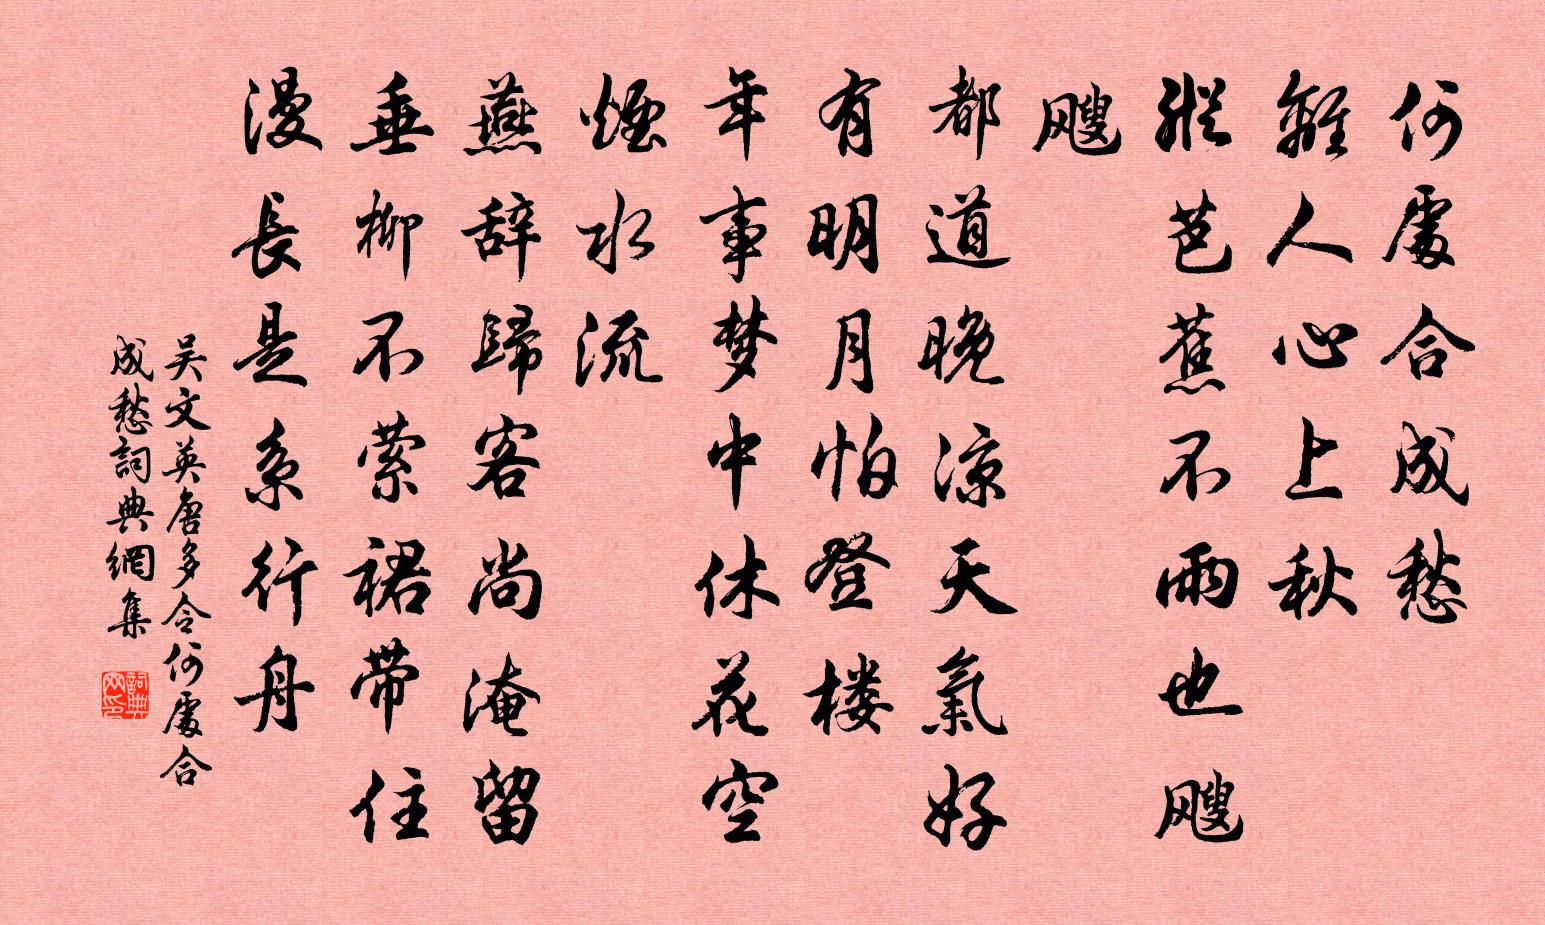 何處合成愁
離人心上秋
縱芭蕉不雨也颼
颼
都道晚涼天氣好
有明月怕登楼
年事梦中休花空
煙水流
燕辞歸客尚淹留
垂柳不萦裙带住
漫長是系行舟
吴文英唐多令何處合
成愁詞典網集
詞典网印